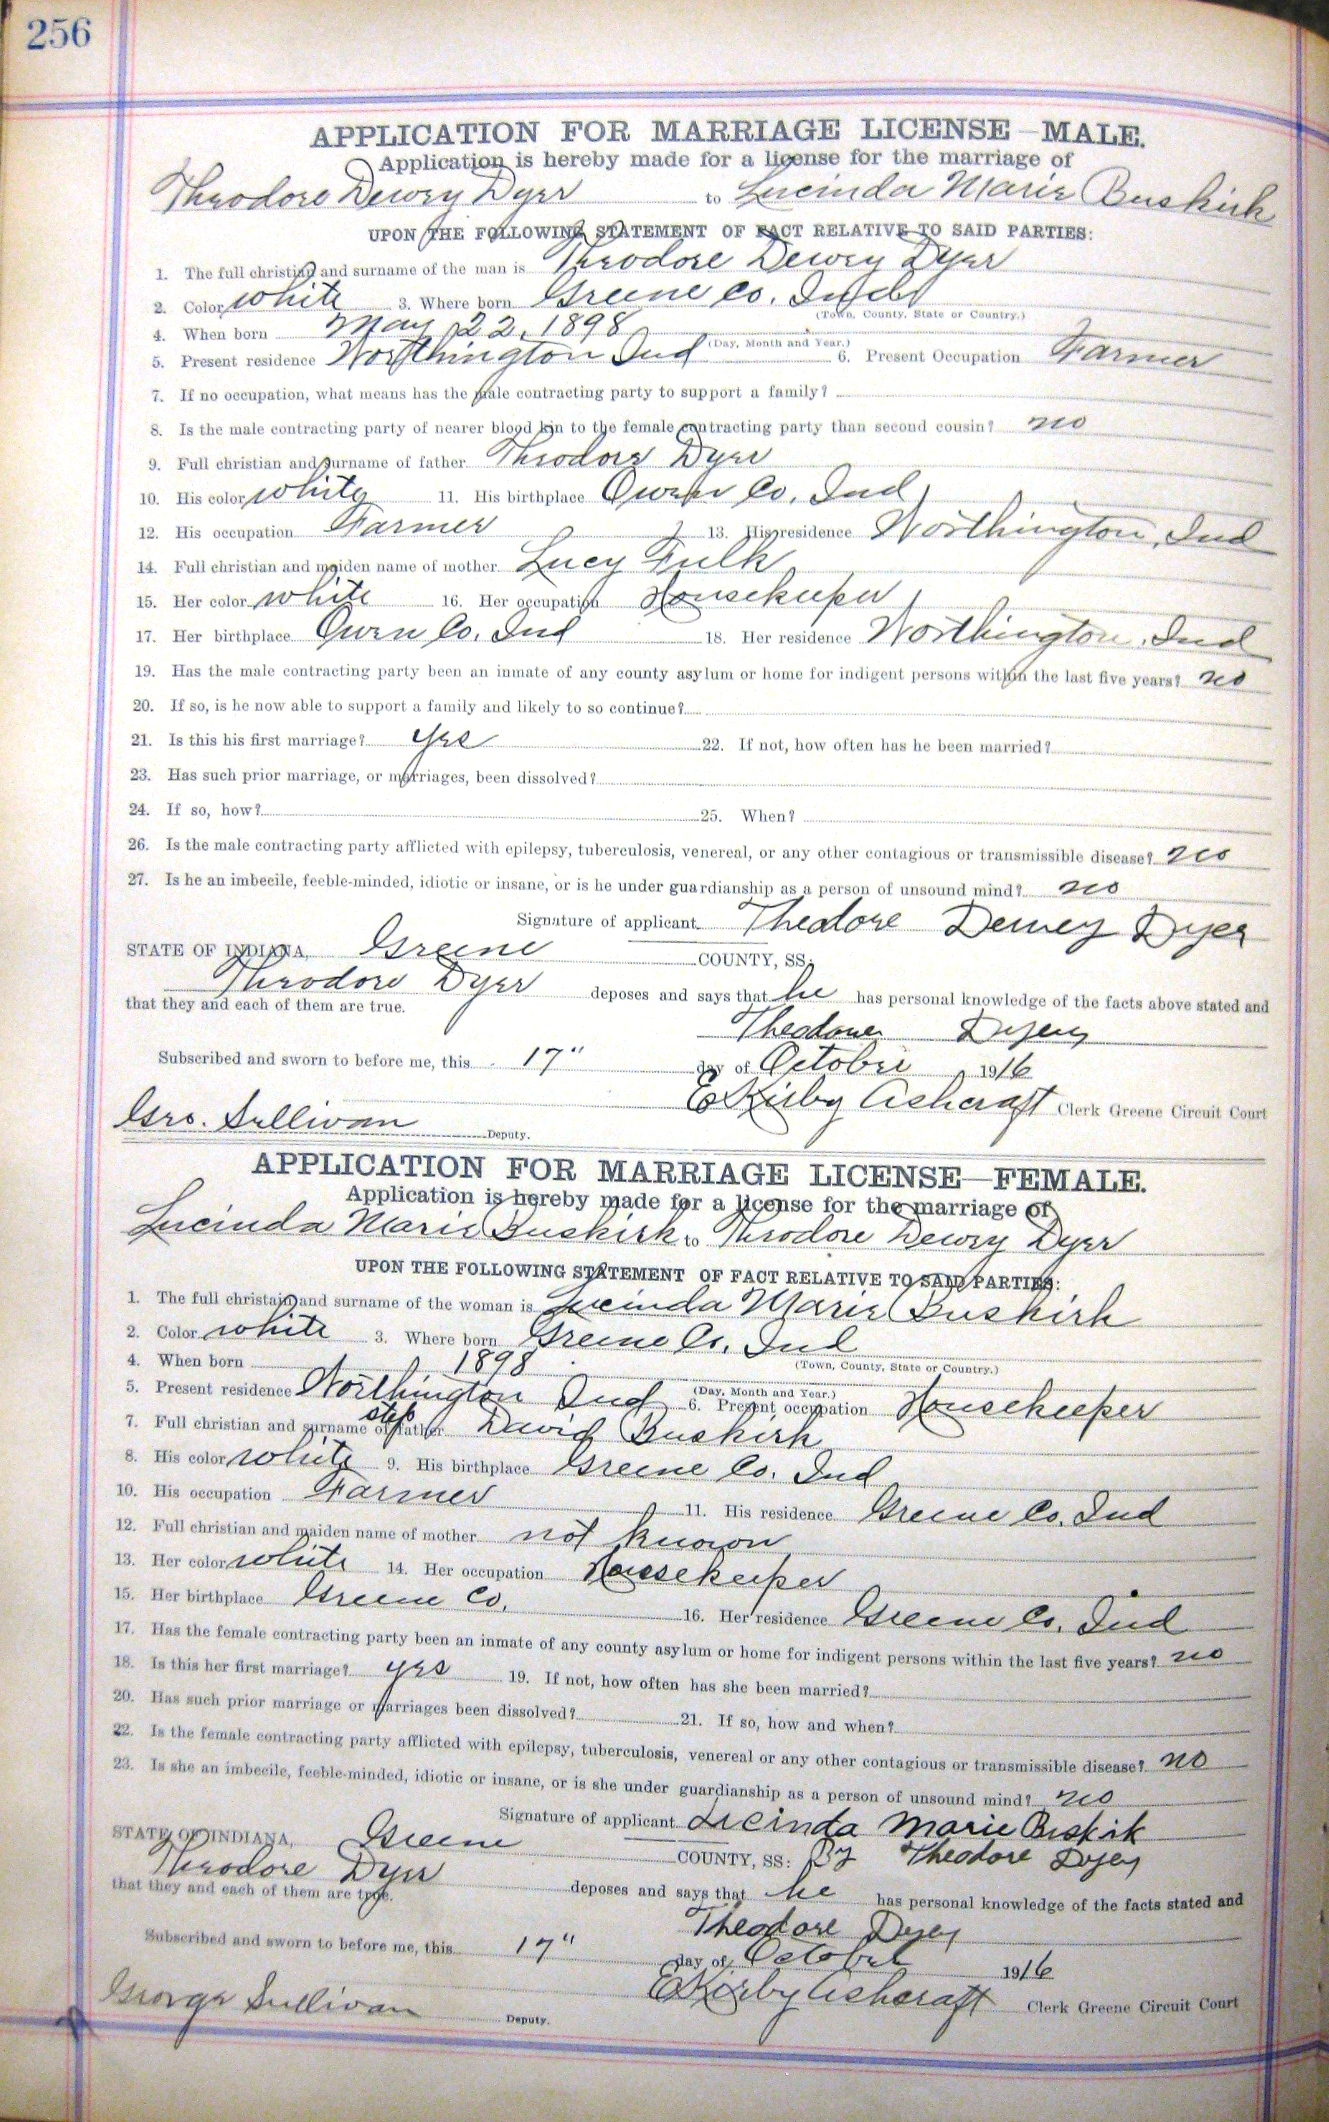 256
APPLICATION FOR MARRIAGE LICENSE—MALE.
Application is hereby made for a license for the marriage of
Theodore Dewey Dyer to Lucinda Marie Buskirk
UPON THE FOLLOWING STATEMENT OF FACT RELATIVE TO SAID PARTIES:
1. The full christian and surname of the man is Theodore Dewey Dyer
2. Color white 3. Where born Greene Co. Ind
(Town, County, State or Country.)
4. When born May 22, 1898
(Day, Month and Year.)
5. Present residence Worthington Ind 6. Present Occupation Farmer
7. If no occupation, what means has the male contracting party to support a family?
8. Is the male contracting party of nearer blood kin to the female contracting party than second cousin? no
9. Full christian and surname of father Theodore Dyer
10. His color white 11. His birthplace Owen Co. Ind
12. His occupation Farmer 13. His residence Worthington, Ind
14. Full christian and maiden name of mother Lucy Fulk
15. Her color white 16. Her occupation Housekeeper
17. Her birthplace Owen Co. Ind 18. Her residence Worthington, Ind
19. Has the male contracting party been an inmate of any county asylum or home for indigent persons within the last five years? no
20. If so, is he now able to support a family and likely to so continue?
21. Is this his first marriage? yes 22. If not, how often has he been married?
23. Has such prior marriage, or marriages, been dissolved?
24. If so, how? 25. When?
26. Is the male contracting party afflicted with epilepsy, tuberculosis, venereal, or any other contagious or transmissible disease? no
27. Is he an imbecile, feeble-minded, idiotic or insane, or is he under guardianship as a person of unsound mind? no
Signature of applicant Theodore Dewey Dyer
STATE OF INDIANA, Greene COUNTY, SS:
Theodore Dyer deposes and says that he has personal knowledge of the facts above stated and
that they and each of them are true.
Theodore Dyer
Subscribed and sworn to before me, this 17" day of October 1916
E Kirby Ashcraft Clerk Greene Circuit Court
Geo. Sullivan Deputy.
APPLICATION FOR MARRIAGE LICENSE—FEMALE.
Application is hereby made for a license for the marriage of
Lucinda Marie Buskirk to Theodore Dewey Dyer
UPON THE FOLLOWING STATEMENT OF FACT RELATIVE TO SAID PARTIES:
1. The full christain and surname of the woman is Lucinda Marie Buskirk
2. Color white 3. Where born Greene Co. Ind
(Town, County, State or Country.)
4. When born 1898
(Day, Month and Year.)
5. Present residence Worthington Ind 6. Present occupation Housekeeper
7. Full christian and surname of step father David Buskirk
8. His color white 9. His birthplace Greene Co. Ind
10. His occupation Farmer 11. His residence Greene Co. Ind
12. Full christian and maiden name of mother not known
13. Her color white 14. Her occupation Housekeeper
15. Her birthplace Greene Co. 16. Her residence Greene Co. Ind
17. Has the female contracting party been an inmate of any county asylum or home for indigent persons within the last five years? no
18. Is this her first marriage? yes 19. If not, how often has she been married?
20. Has such prior marriage or marriages been dissolved? 21. If so, how and when?
22. Is the female contracting party afflicted with epilepsy, tuberculosis, venereal or any other contagious or transmissible disease? no
23. Is she an imbecile, feeble-minded, idiotic or insane, or is she under guardianship as a person of unsound mind? no
Signature of applicant Lucinda Marie Buskirk
STATE OF INDIANA, Greene COUNTY, SS: By Theodore Dyer
Theodore Dyer deposes and says that he has personal knowledge of the facts stated and
that they and each of them are true.
Theodore Dyer
Subscribed and sworn to before me, this 17" day of October 1916
E Kirby Ashcraft Clerk Greene Circuit Court
George Sullivan Deputy.